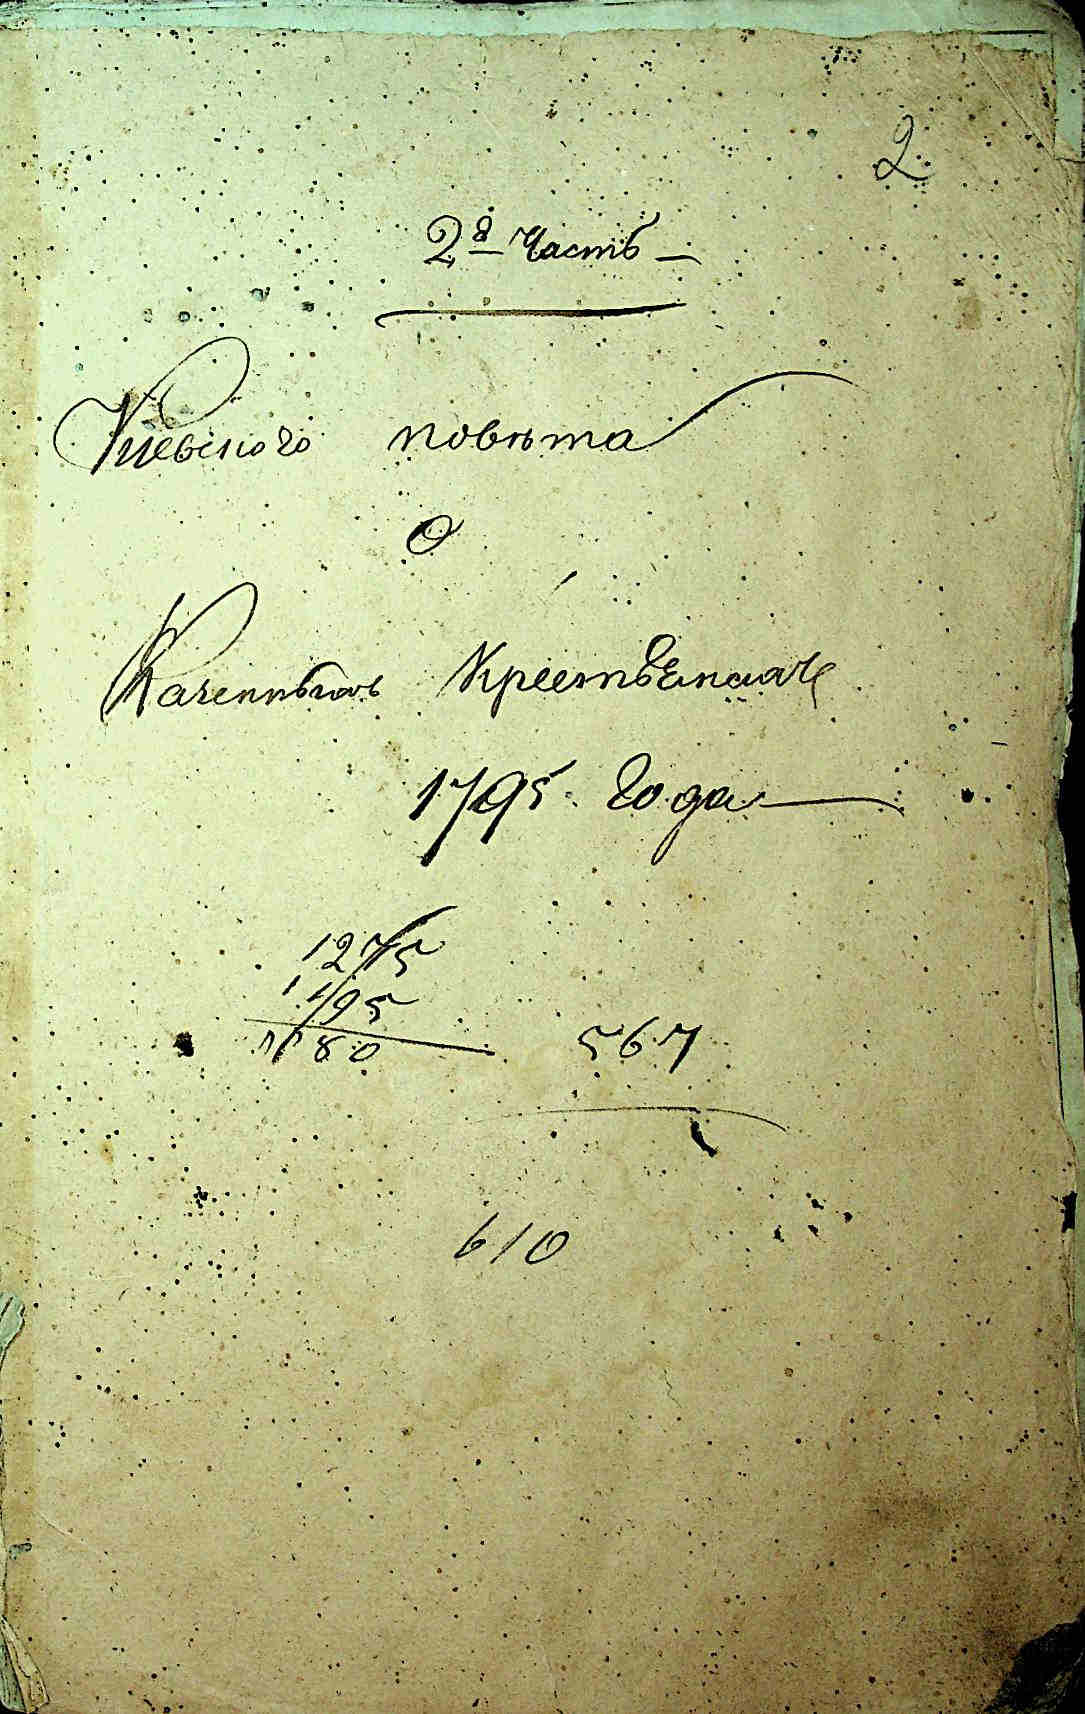 2
2я часть
Киевского повѣта
О
Казенныхъ Крестьянахъ
1795 года
1275
1195
80
567
610